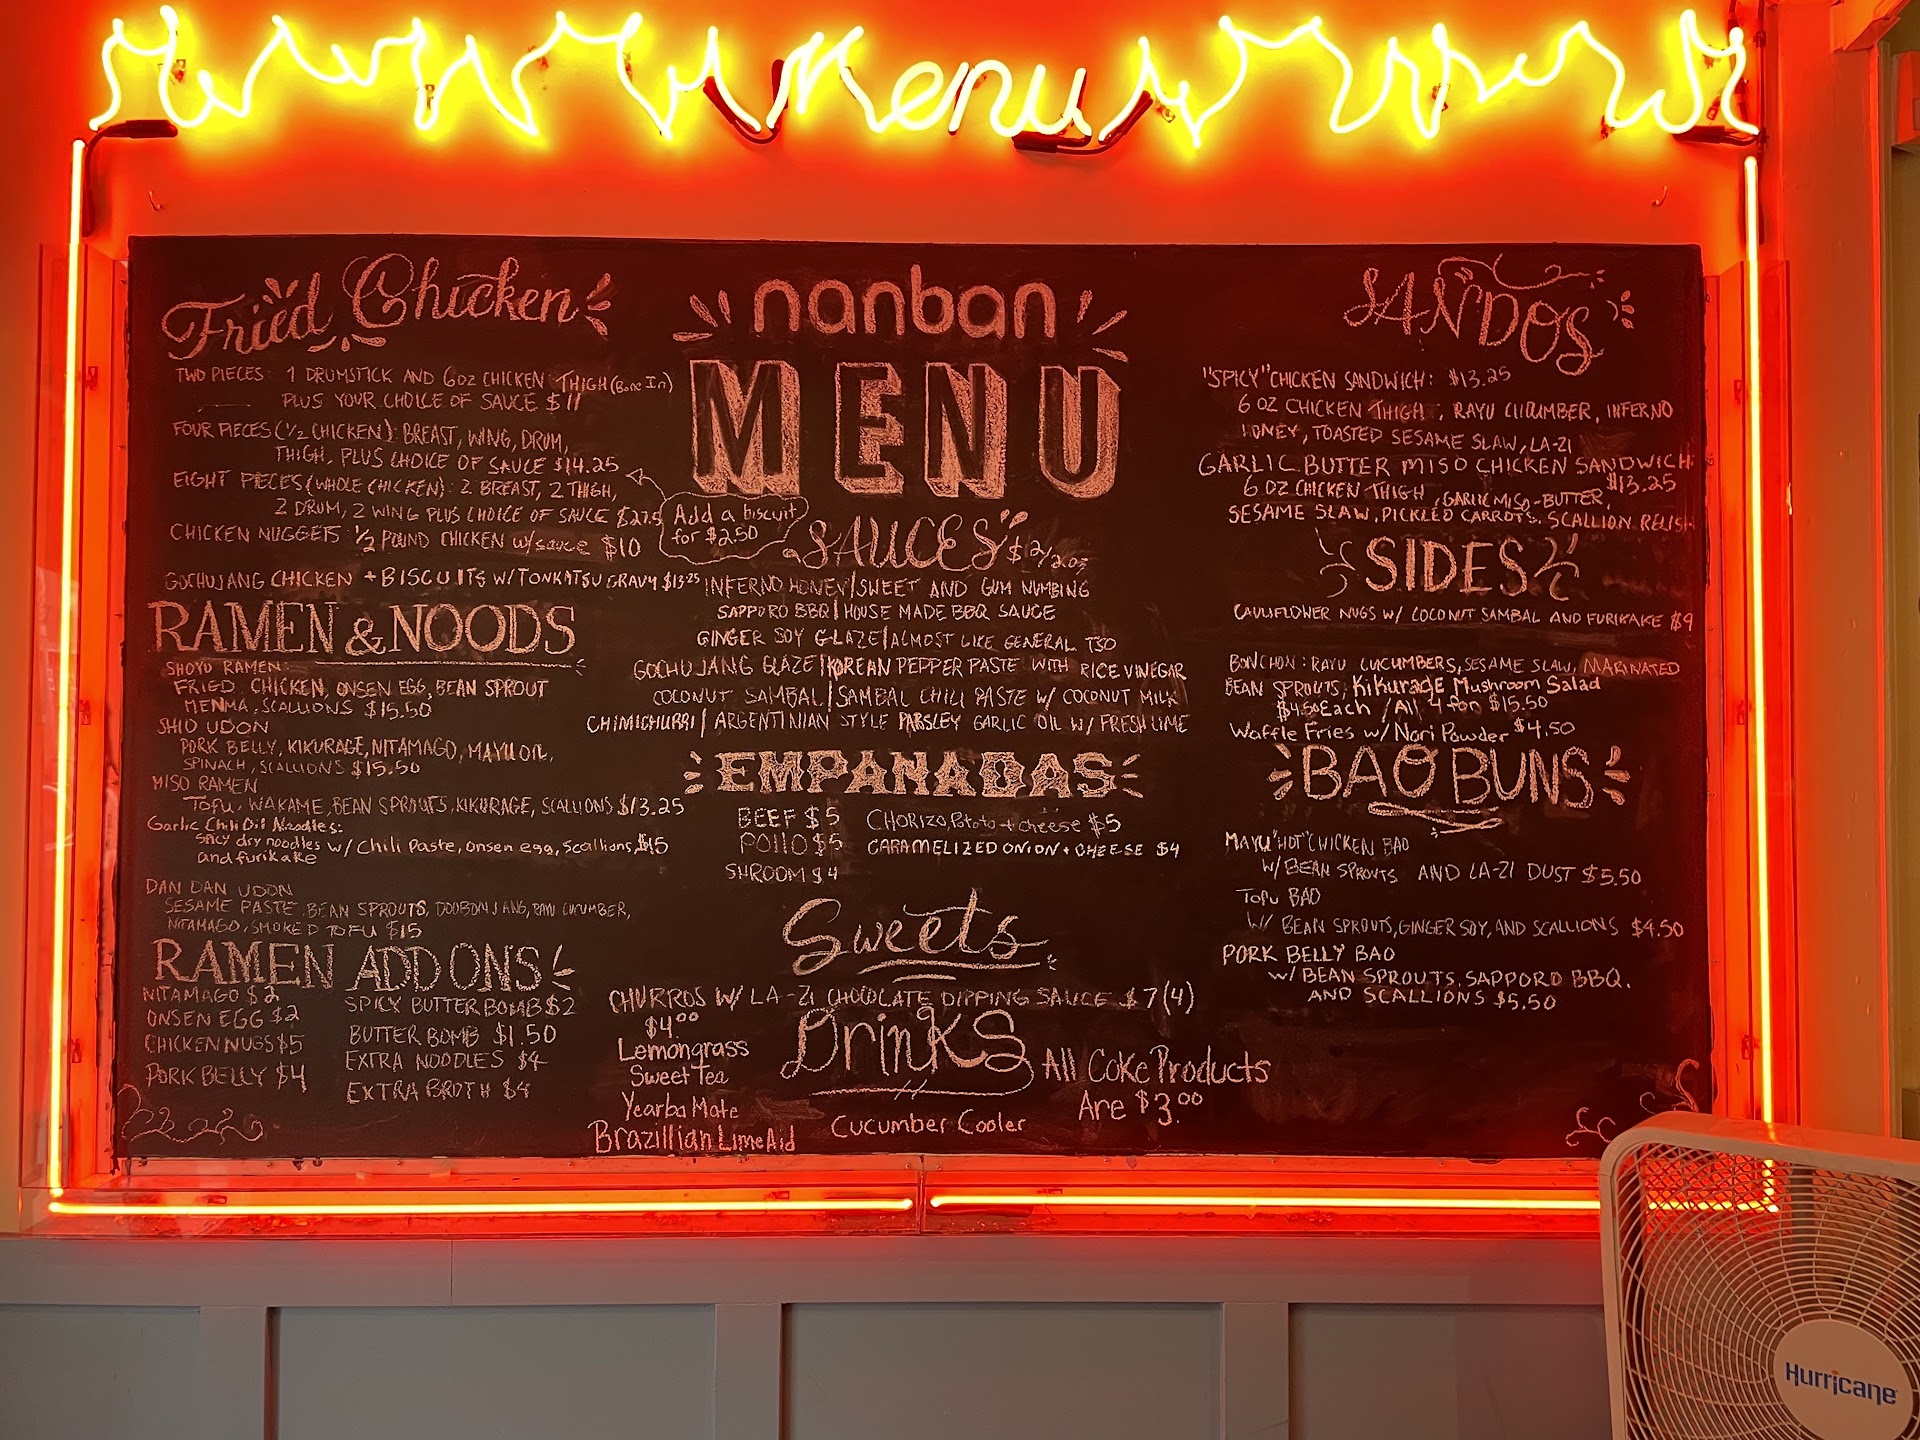 Menu
Fried Chicken
TWO PIECES: 1 DRUMSTICK AND 6OZ CHICKEN THIGH (Bone In)
PLUS YOUR CHOICE OF SAUCE $11
FOUR PIECES (1/2 CHICKEN): BREAST, WING, DRUM,
THIGH, PLUS CHOICE OF SAUCE $14.25
EIGHT PIECES (WHOLE CHICKEN): 2 BREAST, 2 THIGH,
2 DRUM, 2 WING PLUS CHOICE OF SAUCE $27.5
Add a biscuit
for $2.50
CHICKEN NUGGETS: 1/2 POUND CHICKEN w/sauce $10
GOCHUJANG CHICKEN + BISCUITS W/TONKATSU GRAVY $13.25
RAMEN & NOODS
SHOYU RAMEN:
FRIED CHICKEN, ONSEN EGG, BEAN SPROUT
MENMA, SCALLIONS $15.50
SHIO UDON
PORK BELLY, KIKURAGE, NITAMAGO, MAYU OIL,
SPINACH, SCALLIONS $15.50
MISO RAMEN
TOFU, WAKAME, BEAN SPROUTS, KIKURAGE, SCALLIONS $13.25
Garlic Chili Oil Noodles:
Spicy dry noodles w/ Chili Paste, onsen egg, Scallions, $15
and furikake
DAN DAN UDON
SESAME PASTE, BEAN SPROUTS, DOUBONJANG, RAYU CUCUMBER,
NITAMAGO, SMOKED TOFU $15
RAMEN ADD ONS
NITAMAGO $2
ONSEN EGG $2
CHICKEN NUGS $5
PORK BELLY $4
SPICY BUTTER BOMB $2
BUTTER BOMB $1.50
EXTRA NOODLES $4
EXTRA BROTH $4
nanban
MENU
SAUCES $2/2oz
INFERNO HONEY/SWEET AND GUM NUMBING
SAPPORO BBQ|HOUSE MADE BBQ SAUCE
GINGER SOY GLAZE|ALMOST LIKE GENERAL TSO
GOCHUJANG GLAZE|KOREAN PEPPER PASTE WITH RICE VINEGAR
COCONUT SAMBAL|SAMBAL CHILI PASTE W/ COCONUT MILK
CHIMICHURRI|ARGENTINIAN STYLE PARSLEY GARLIC OIL W/ FRESH LIME
EMPANADAS
BEEF $5
POllO $5
SHROOM $4
CHORIZO, Potato + cheese $5
CARAMELIZED ONION + CHEESE $4
Sweets
CHURROS W/ LA-ZI CHOCOLATE DIPPING SAUCE $7 (4)
Drinks
$4.00
Lemongrass
Sweet Tea
Yearba Mate
Brazillian LimeAid
Cucumber Cooler
All Coke Products
Are $3.00
SANDOS
"SPICY" CHICKEN SANDWICH: $13.25
6 OZ CHICKEN THIGH, RAYU CUCUMBER, INFERNO
HONEY, TOASTED SESAME SLAW, LA-ZI
GARLIC BUTTER MISO CHICKEN SANDWICH
$13.25
6 OZ CHICKEN THIGH, GARLIC MISO-BUTTER,
SESAME SLAW, PICKLED CARROTS, SCALLION RELISH
SIDES
CAULIFLOWER NUGS W/ COCONUT SAMBAL AND FURIKAKE $9
BONCHON: RAYU CUCUMBERS, SESAME SLAW, MARINATED
BEAN SPROUTS, KiKURAGE Mushroom Salad
$4.50 Each / All 4 for $15.50
Waffle Fries w/ Nori Powder $4.50
BAO BUNS
MAYU "HOT" CHICKEN BAO
W/ BEAN SPROUTS AND LA-ZI DUST $5.50
TOFU BAO
W/ BEAN SPROUTS, GINGER SOY, AND SCALLIONS $4.50
PORK BELLY BAO
W/ BEAN SPROUTS, SAPPORO BBQ,
AND SCALLIONS $5.50
Hurricane